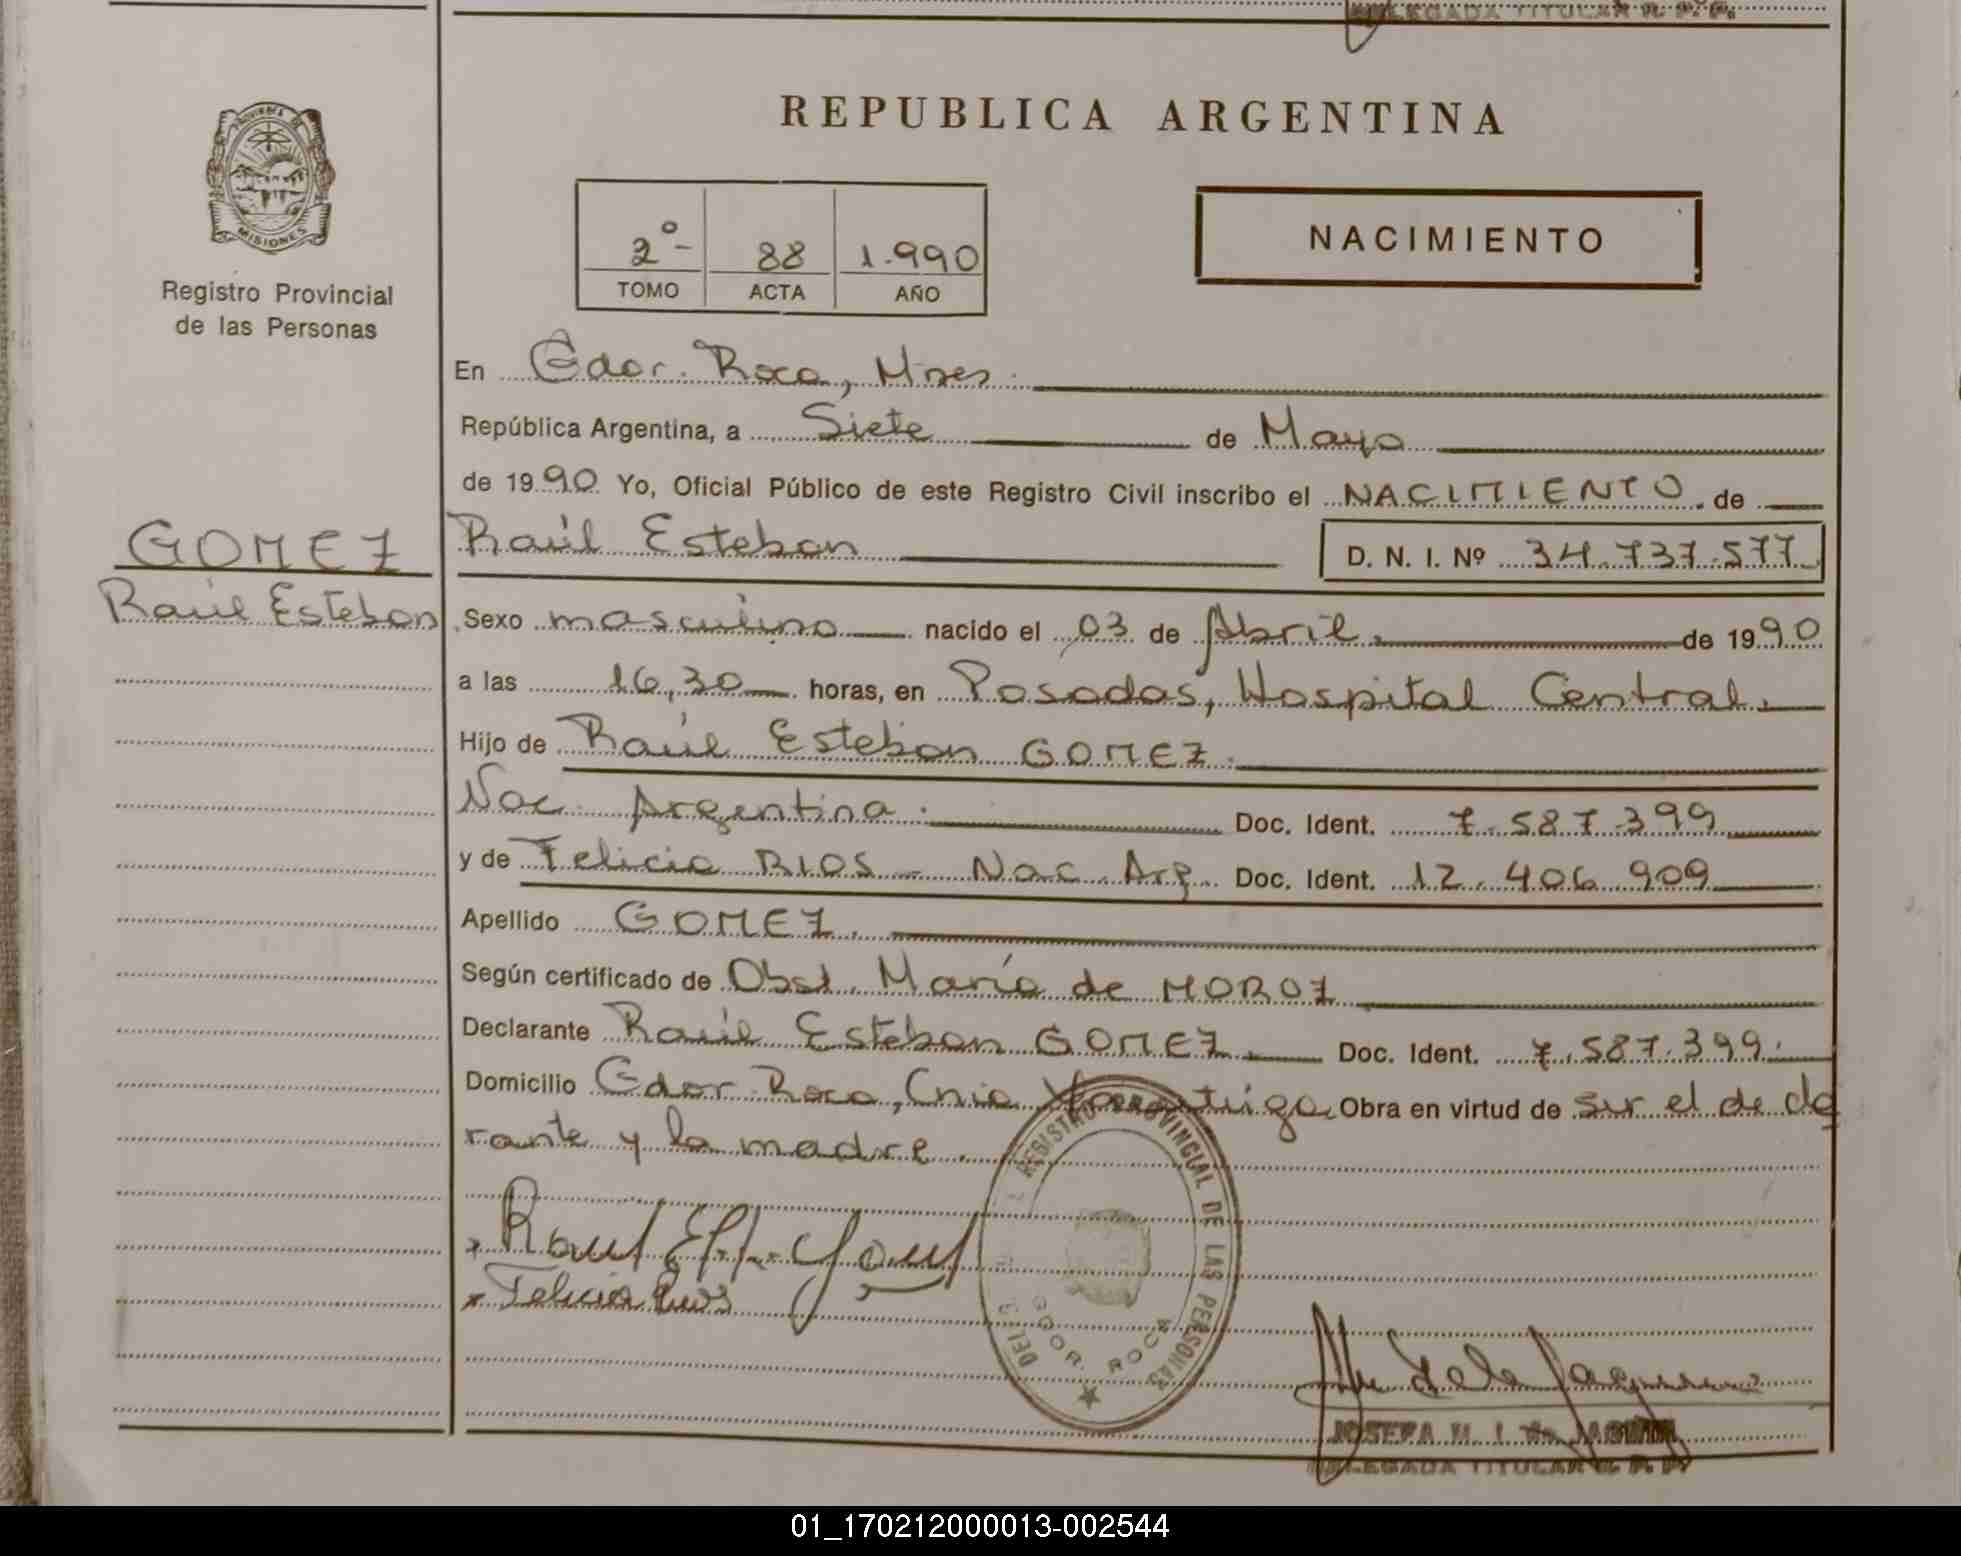 DELEGADA TITULAR R. P. P.
PROVINCIA DE
MISIONES
Registro Provincial
de las Personas
REPUBLICA ARGENTINA
2º- 88 1.990
TOMO ACTA AÑO
NACIMIENTO
En Gdor. Roca, Mnes.
República Argentina, a Siete de Mayo
de 1990 Yo, Oficial Público de este Registro Civil inscribo el NACIMIENTO de
GOMEZ
Raúl Esteban
Raúl Esteban D. N. I. Nº 34.737.577
Sexo masculino nacido el 03 de Abril de 1990
a las 16,30 horas, en Posadas, Hospital Central.
Hijo de Raúl Esteban GOMEZ.
Nac. Argentina. Doc. Ident. 7.587.399
y de Felicia RIOS - Nac. Arg. Doc. Ident. 12.406.909
Apellido GOMEZ.
Según certificado de Obst. María de MOROZ
Declarante Raúl Esteban GOMEZ Doc. Ident. 7.587.399.
Domicilio Gdor. Roca, Cnia Obra en virtud de ser el de cla
rante y la madre.
REGISTRO PROVINCIAL DE LAS PERSONAS
GDOR. ROCA
Felicia Rios
JOSEFA M. I. de
DELEGADA TITULAR R. P. P.
01_170212000013-002544